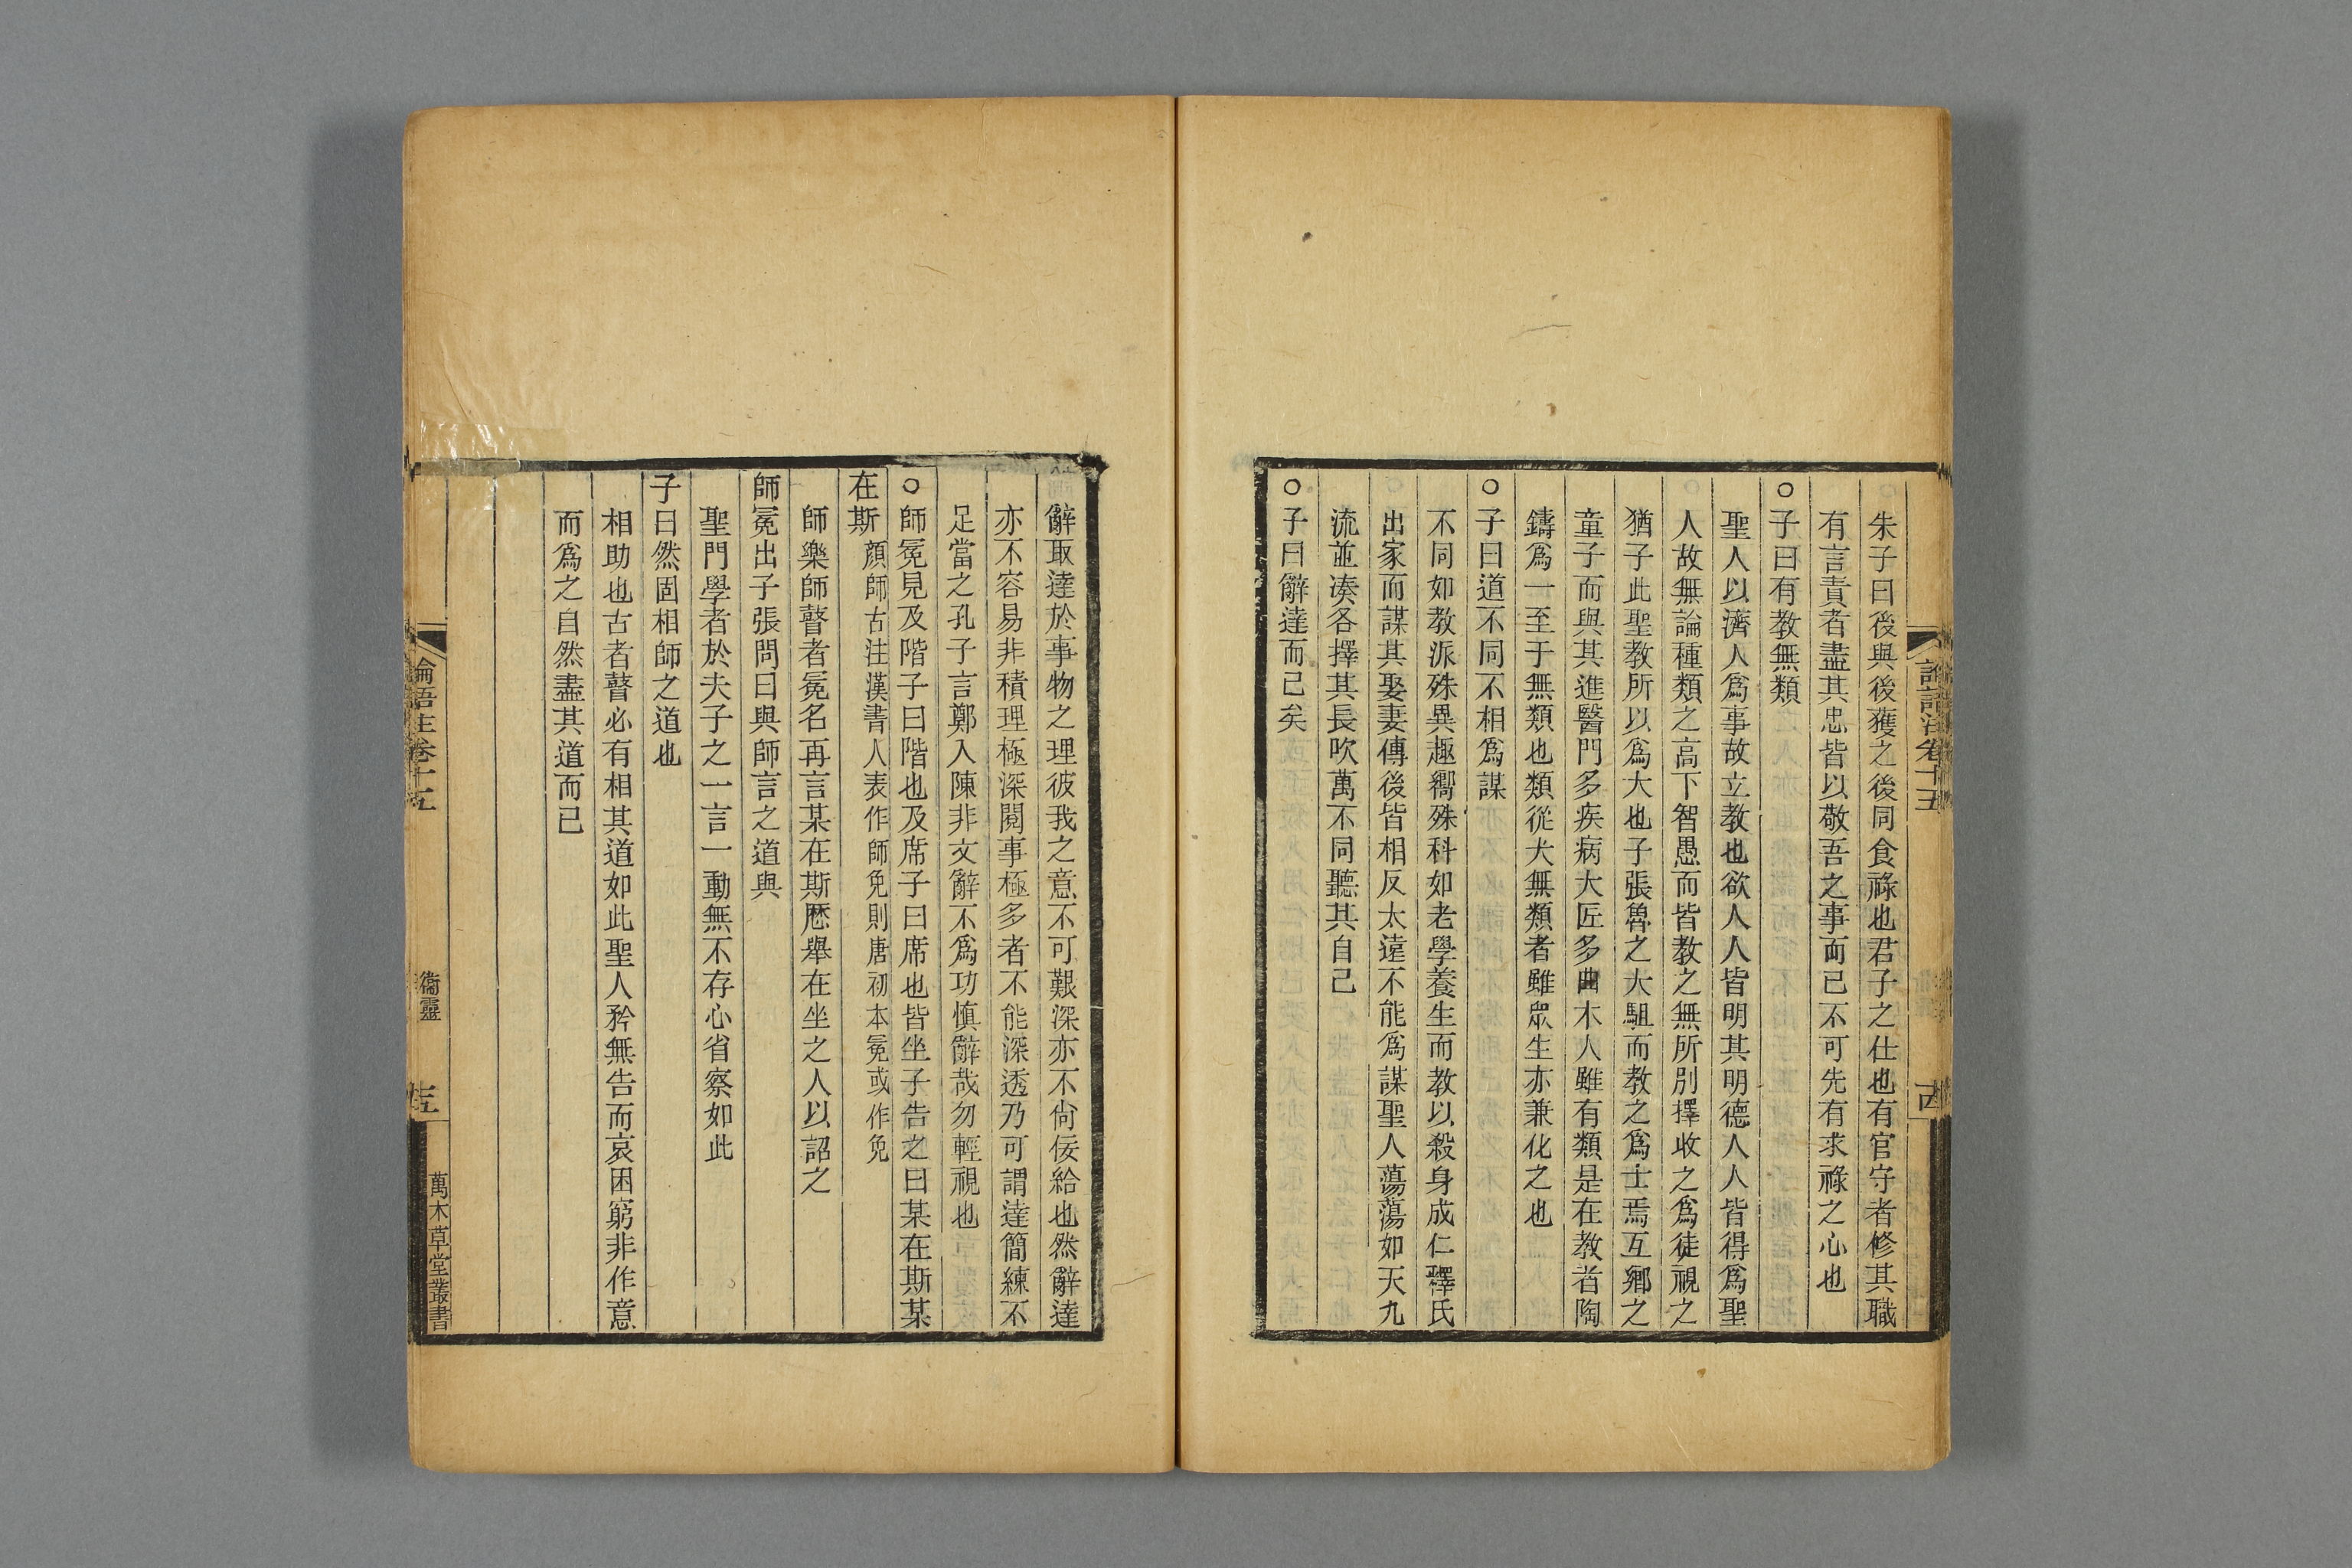 朱子曰後與後獲之後同食祿也君子之仕也有官守者修其職
有言責者盡其忠皆以敬吾之事而已不可先有求祿之心也
○子曰有教無類
聖人以濟人爲事故立教也欲人人皆明其明德人人皆得爲聖
人故無論種類之高下智愚而皆教之無所別擇收之爲徒視之
猶子此聖教所以爲大也子張魯之大駔而教之爲士焉互鄉之
童子而與其進醫門多疾病大匠多曲木人雖有類是在教者陶
鑄爲一至于無類也類從犬無類者雖眾生亦兼化之也
○子曰道不同不相爲謀
不同如教派殊異趣嚮殊科如老學養生而教以殺身成仁釋氏
出家而謀其娶妻傳後皆相反太遠不能爲謀聖人蕩蕩如天九
流並湊各擇其長吹萬不同聽其自己
○子曰辭達而已矣
論語注卷十五
辭取達於事物之理彼我之意不可艱深亦不尙佞給也然辭達
亦不容易非積理極深閱事極多者不能深透乃可謂達簡練不
足當之孔子言鄭入陳非文辭不爲功慎辭哉勿輕視也
○師冕見及階子曰階也及席子曰席也皆坐子告之曰某在斯某
在斯 顏師古注漢書人表作師免則唐初本冕或作免
師樂師瞽者冕名再言某在斯歷舉在坐之人以詔之
師冕出子張問曰與師言之道與
聖門學者於夫子之一言一動無不存心省察如此
子曰然固相師之道也
相助也古者瞽必有相其道如此聖人矜無告而哀困窮非作意
而爲之自然盡其道而已
論語注卷十五
衞靈
萬木草堂叢書